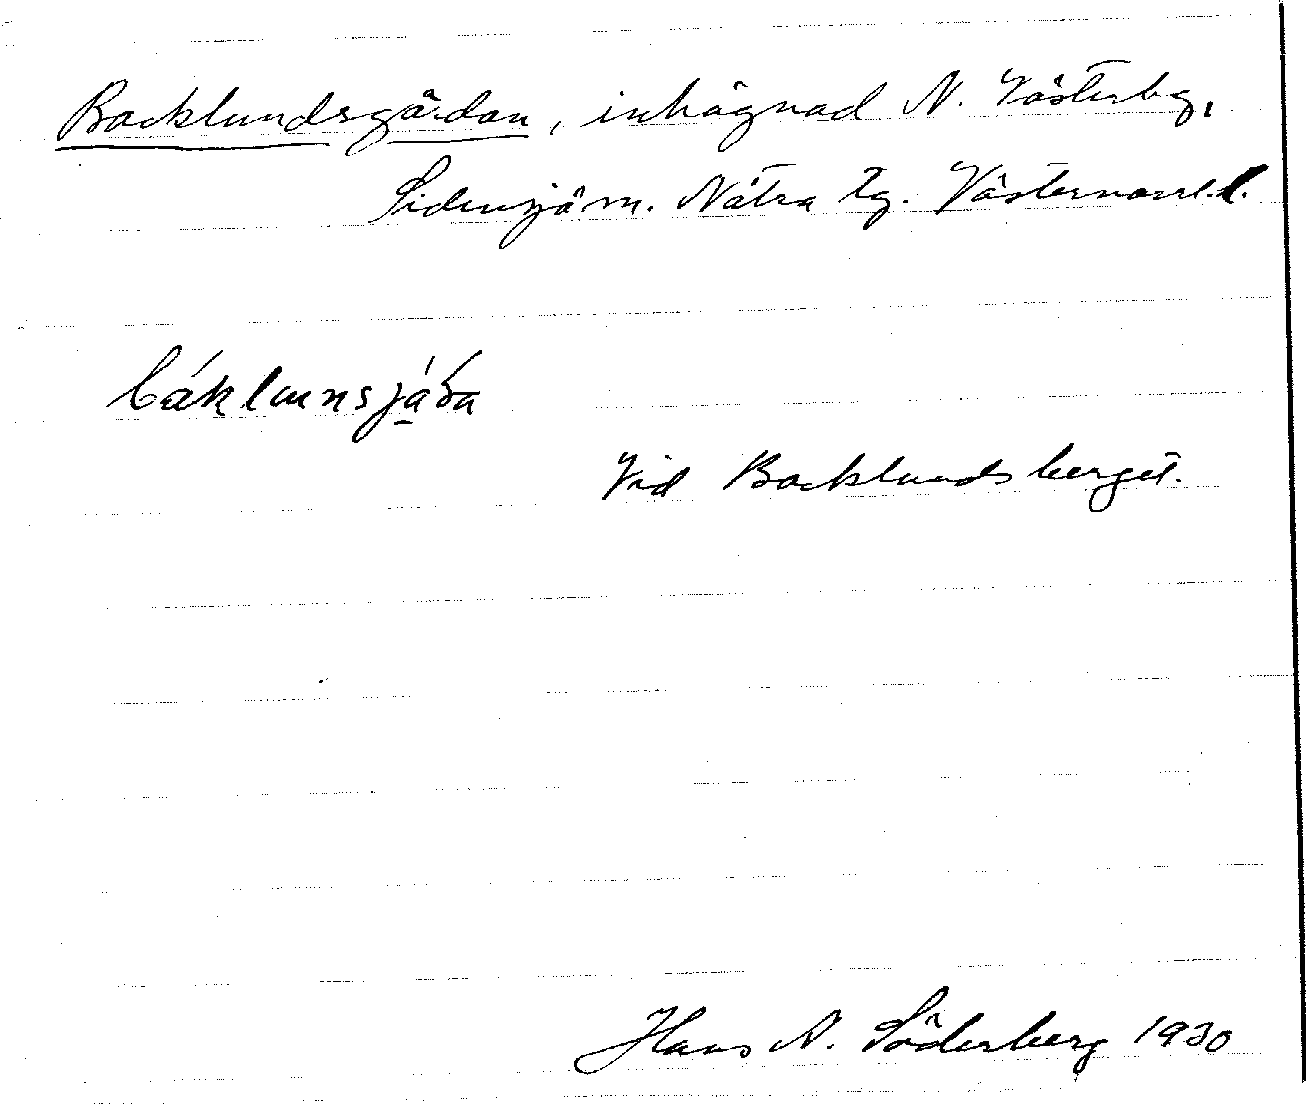 Backlundsgärdan, inhägnad N. Västerbg,
Sidensjö sn. Nätra tg. Västernorrl. l.
báklunsjáða
Vid Backlundsberget.
Hans N. Söderberg 1930